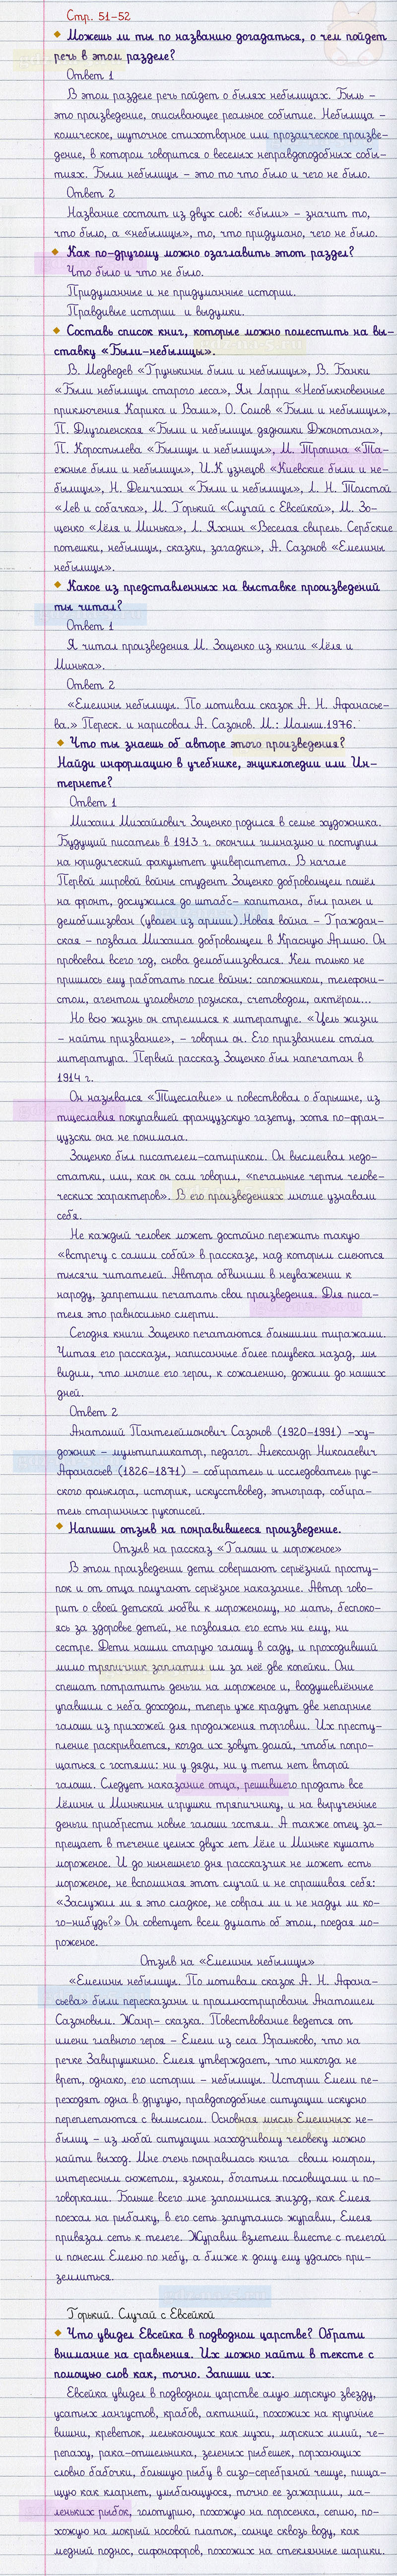 Стр. 51-52
Можешь ли ты по названию догадаться, о чем пойдет
речь в этом разделе?
Ответ 1
В этом разделе речь пойдет о былях небылицах. Быль –
это произведение, описывающее реальное событие. Небылица –
комическое, шуточное стихотворное или прозаическое произве-
дение, в котором говорится о веселых неправдоподобных собы-
тиях. Были небылицы – это то что было и чего не было.
Ответ 2
Название состоит из двух слов: «были» – значит то,
что было, а «небылицы», то, что придумано, чего не было.
Как по-другому можно озаглавить этот раздел?
Что было и что не было.
Придуманные и не придуманные истории.
Правдивые истории и выдумки.
Составь список книг, которые можно поместить на вы-
ставку «Были-небылицы».
В. Медведев «Грунькины были и небылицы», В. Банки
«Были небылицы старого леса», Ян Ларри «Необыкновенные
приключения Карика и Вали», О. Сомов «Были и небылицы»,
П. Длуголенская «Были и небылицы дядюшки Джонотана»,
П. Коростылева «Былицы и небылицы», М. Тропина «Та-
ежные были и небылицы», И.К узнецов «Киевские были и не-
былицы», Н. Демчихин «Были и небылицы», Л. Н. Толстой
«Лев и собачка», М. Горький «Случай с Евсейкой», М. Зо-
щенко «Лёля и Минька», Л. Яхнин «Веселая свирель. Сербские
потешки, небылицы, сказки, загадки», А. Сазонов «Емелины
небылицы».
Какое из представленных на выставке произведений
ты читал?
Ответ 1
Я читал произведения М. Зощенко из книги «Лёля и
Минька».
Ответ 2
«Емелины небылицы. По мотивам сказок А. Н. Афанасье-
ва.» Переск. и нарисовал А. Сазонов. М.: Малыш.1976.
Что ты знаешь об авторе этого произведения?
Найди информацию в учебнике, энциклопедии или Ин-
тернете?
Ответ 1
Михаил Михайлович Зощенко родился в семье художника.
Будущий писатель в 1913 г. окончил гимназию и поступил
на юридический факультет университета. В начале
Первой мировой войны студент Зощенко добровольцем пошёл
на фронт, дослужился до штабс- капитана, был ранен и
демобилизован (уволен из армии).Новая война – Граждан-
ская – позвала Михаила добровольцем в Красную Армию. Он
провоевал всего год, снова демобилизовался. Кем только не
пришлось ему работать после войны: сапожником, телефони-
стом, агентом уголовного розыска, счетоводом, актёром...
Но всю жизнь он стремился к литературе. «Цель жизни
– найти призвание», – говорил он. Его призванием стала
литература. Первый рассказ Зощенко был напечатан в
1914 г.
Он назывался «Тщеславие» и повествовал о барышне, из
тщеславия покупавшей французскую газету, хотя по-фран-
цузски она не понимала.
Зощенко был писателем-сатириком. Он высмеивал недо-
статки, или, как он сам говорил, «печальные черты челове-
ческих характеров». В его произведениях многие узнавали
себя.
Не каждый человек может достойно пережить такую
«встречу с самим собой» в рассказе, над которым смеются
тысячи читателей. Автора обвинили в неуважении к
народу, запретили печатать сваи произведения. Для писа-
теля это равносильно смерти.
Сегодня книги Зощенко печатаются большими тиражами.
Читая его рассказы, написанные более полувека назад, мы
видим, что многие его герои, к сожалению, дожили до наших
дней.
Ответ 2
Анатолий Пантелеймонович Сазонов (1920-1991) -ху-
дожник – мультипликатор, педагог. Александр Николаевич
Афанасьев (1826-1871) – собиратель и исследователь рус-
ского фольклора, историк, искусствовед, этнограф, собира-
тель старинных рукописей.
Напиши отзыв на понравившееся произведение.
Отзыв на рассказ «Галоши и мороженое»
В этом произведении дети совершают серьёзный просту-
пок и от отца получают серьёзное наказание. Автор гово-
рит о своей детской любви к мороженому, но мать, беспоко-
ясь за здоровье детей, не позволяла его есть ни ему, ни
сестре. Дети нашли старую галошу в саду, и проходивший
мимо тряпичник заплатил им за неё две копейки. Они
спешат потратить деньги на мороженое и, воодушевлённые
упавшим с неба доходом, теперь уже крадут две непарные
галоши из прихожей для продолжения торговли. Их престу-
пление раскрывается, когда их зовут домой, чтобы попро-
щаться с гостями: ни у дяди, ни у тети нет второй
галоши. Следует наказание отца, решившего продать все
Лёлины и Минькины игрушки тряпичнику, и на вырученные
деньги приобрести новые галоши гостям. А также отец за-
прещает в течение целых двух лет Лёле и Миньке кушать
мороженое. И до нынешнего дня рассказчик не может есть
мороженое, не вспоминая этот случай и не спрашивая себя:
«Заслужил ли я это сладкое, не соврал ли и не надул ли ко-
го-нибудь?» Он советует всем думать об этом, поедая мо-
роженое.
Отзыв на «Емелины небылицы»
«Емелины небылицы. По мотивам сказок А. Н. Афана-
сьева» были пересказаны и проиллюстрированы Анатолием
Сазоновым. Жанр- сказка. Повествование ведется от
имени главного героя – Емели из села Вральково, что на
речке Завирушкино. Емеля утверждает, что никогда не
врет, однако, его истории – небылицы. Истории Емели пе-
реходят одна в другую, правдоподобные ситуации искусно
переплетаются с вымыслом. Основная мысль Емелиных не-
былиц – из любой ситуации находчивому человеку можно
найти выход. Мне очень понравилась книга своим юмором,
интересным сюжетом, языком, богатым пословицами и по-
говорками. Больше всего мне запомнился эпизод, как Емеля
поехал на рыбалку, в его сеть запутались журавли, Емеля
привязал сеть к телеге. Журавли взлетели вместе с телегой
и понесли Емелю по небу, а ближе к дому ему удалось при-
землиться.
Горький. Случай с Евсейкой
Что увидел Евсейка в подводном царстве? Обрати
внимание на сравнения. Их можно найти в тексте с
помощью слов как, точно. Запиши их.
Евсейка увидел в подводном царстве алую морскую звезду,
усатых лангустов, крабов, актиний, похожих на крупные
вишни, креветок, мелькающих как мухи, морских лилий, че-
репаху, рака-отшельника, зеленых рыбешек, порхающих
словно бабочки, большую рыбу в сизо-серебряной чешуе, пища-
щую как кларнет, улыбающуюся, точно ее зажарили, ма-
леньких рыбок, голотурию, похожую на поросенка, сепию, по-
хожую на мокрый носовой платок, солнце сквозь воду, как
медный поднос, сифонофоров, похожих на стеклянные шарики.